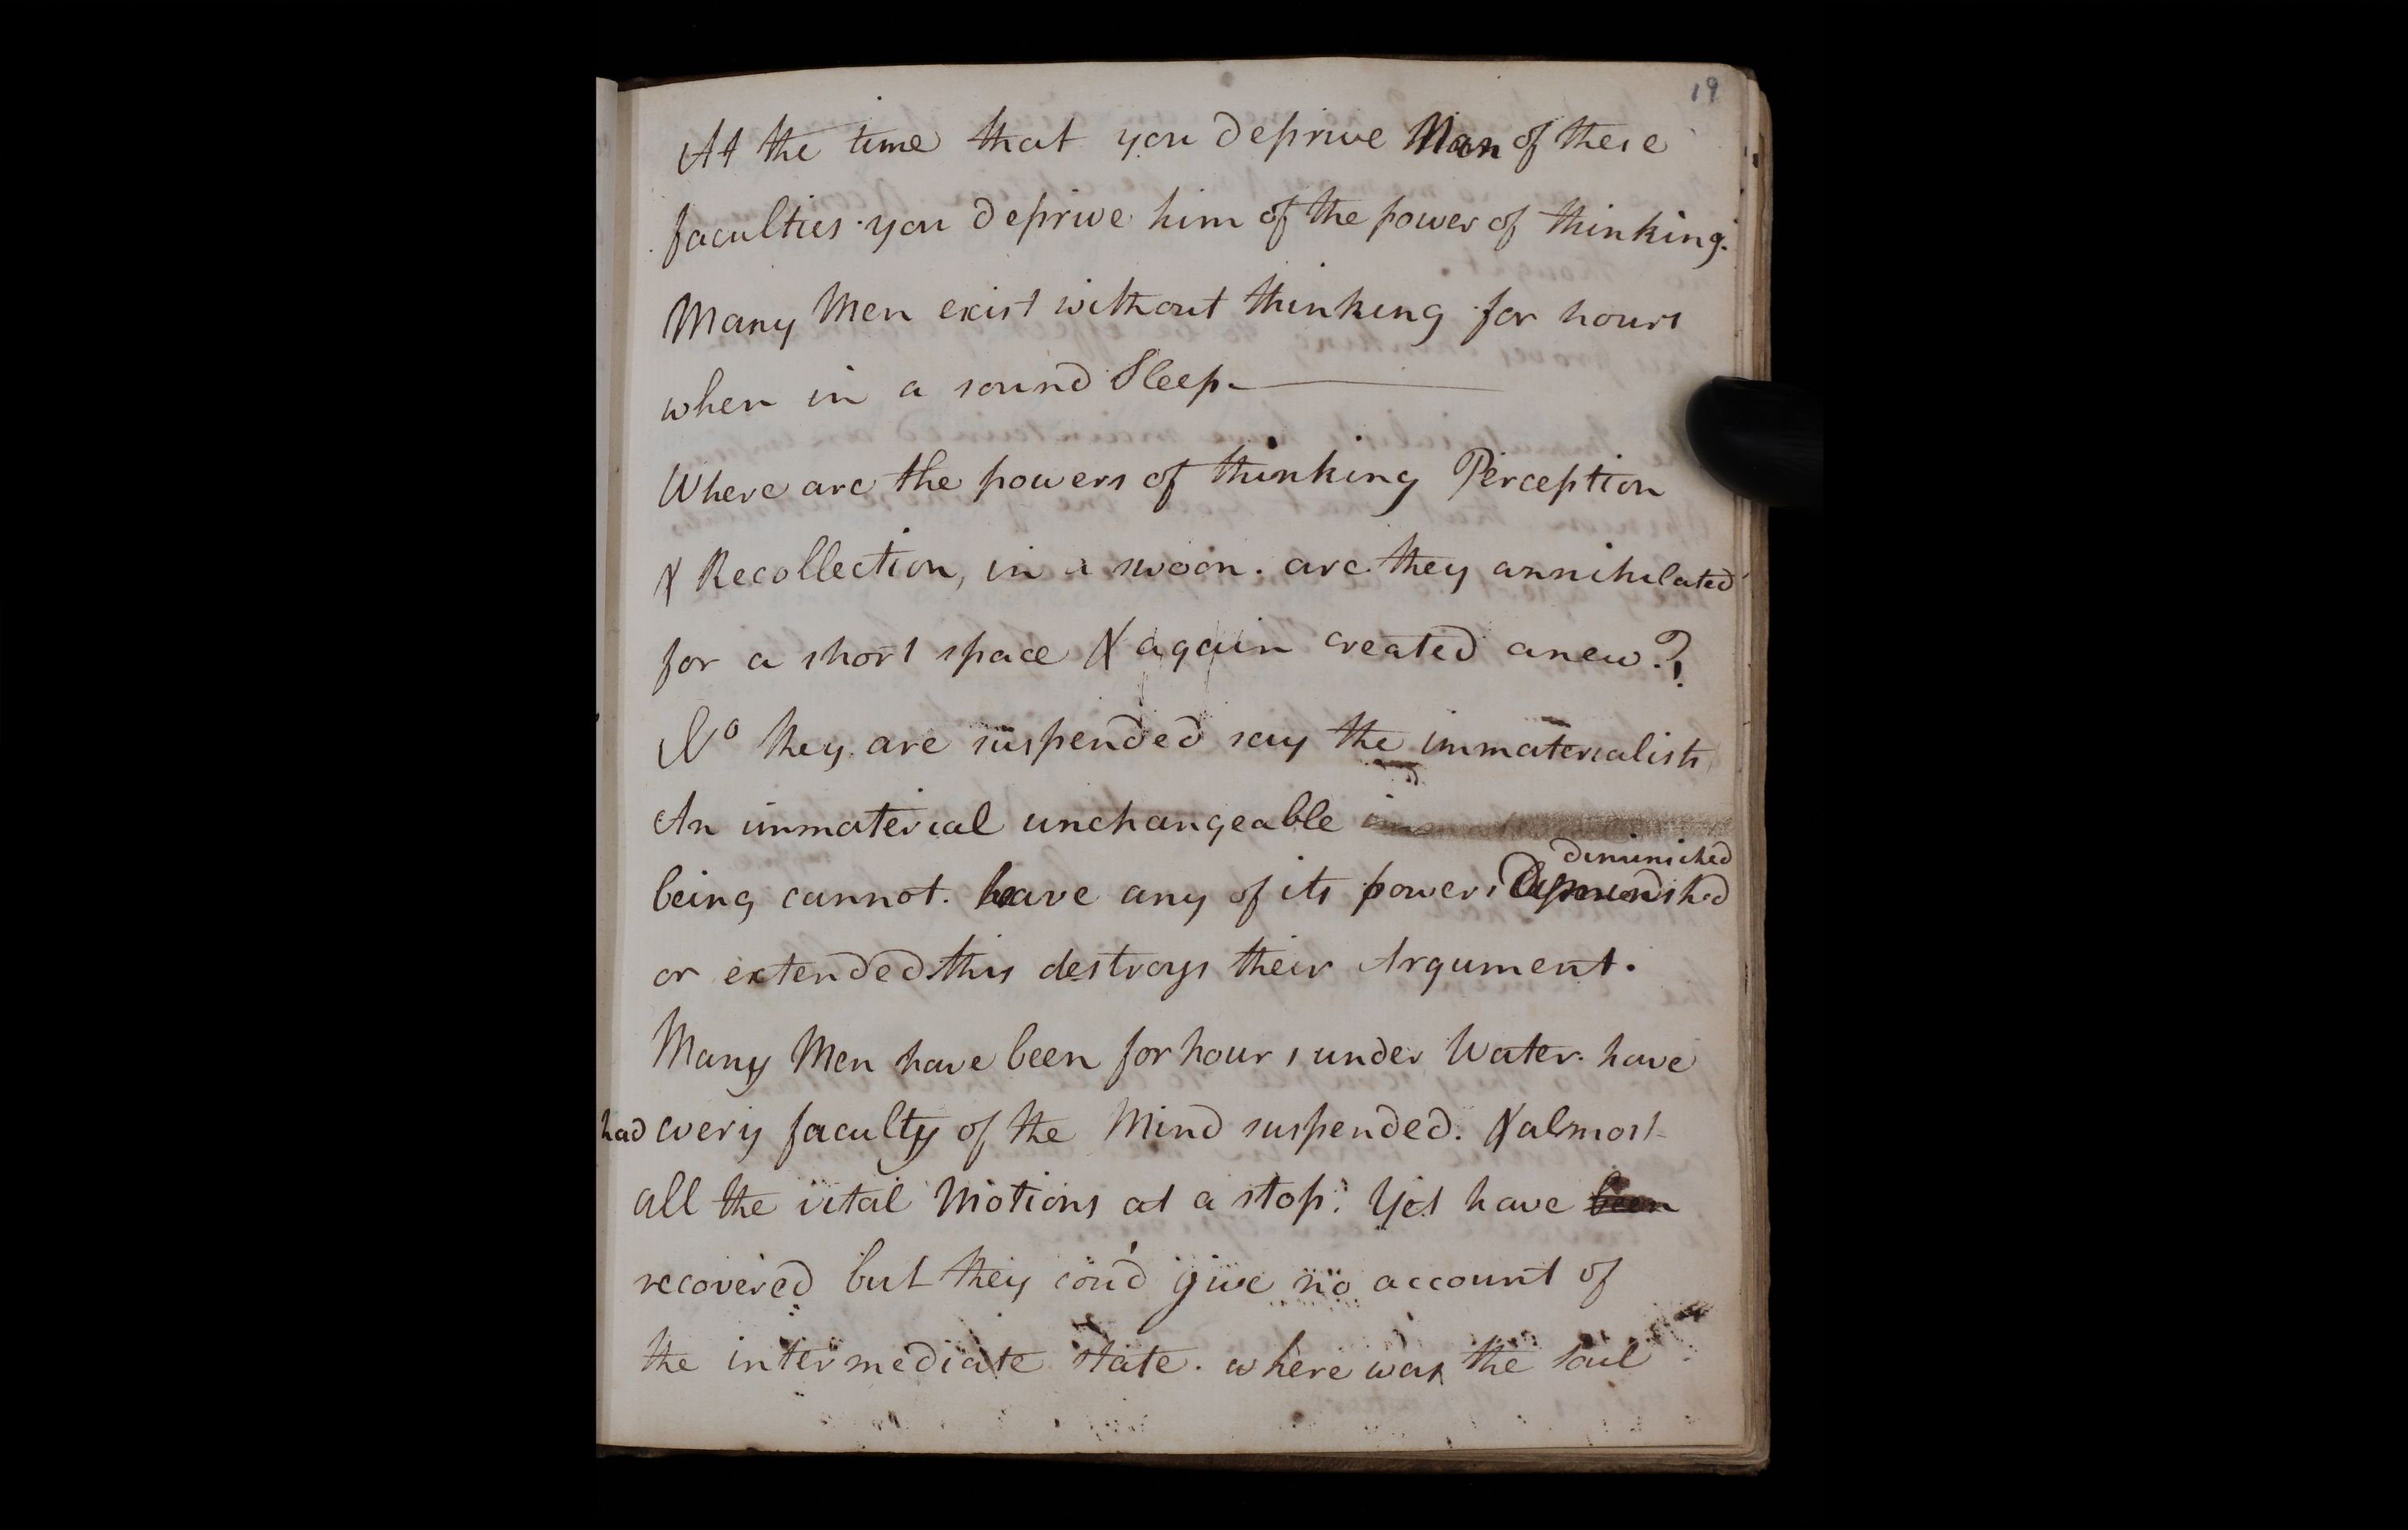 19
At the time that you deprive Man of these
faculties you deprive him of the power of thinking.
Many Men exist without thinking for hours
when in a sound Sleep.
Where are the powers of thinking Perception
& Recollection, in a swoon. are they annihilated
for a short space & again created anew?
No they are suspended say the immaterialists
An immaterial unchangeable
diminished
being cannot. have any of its powers
or extended this destroys their Argument.
Many Men have been for hours under Water. have
had every faculty of the Mind suspended. & almost
all the vital Motions at a stop. Yet have been
recovered but they cou'd give no account of
the intermediate state. where was the soul